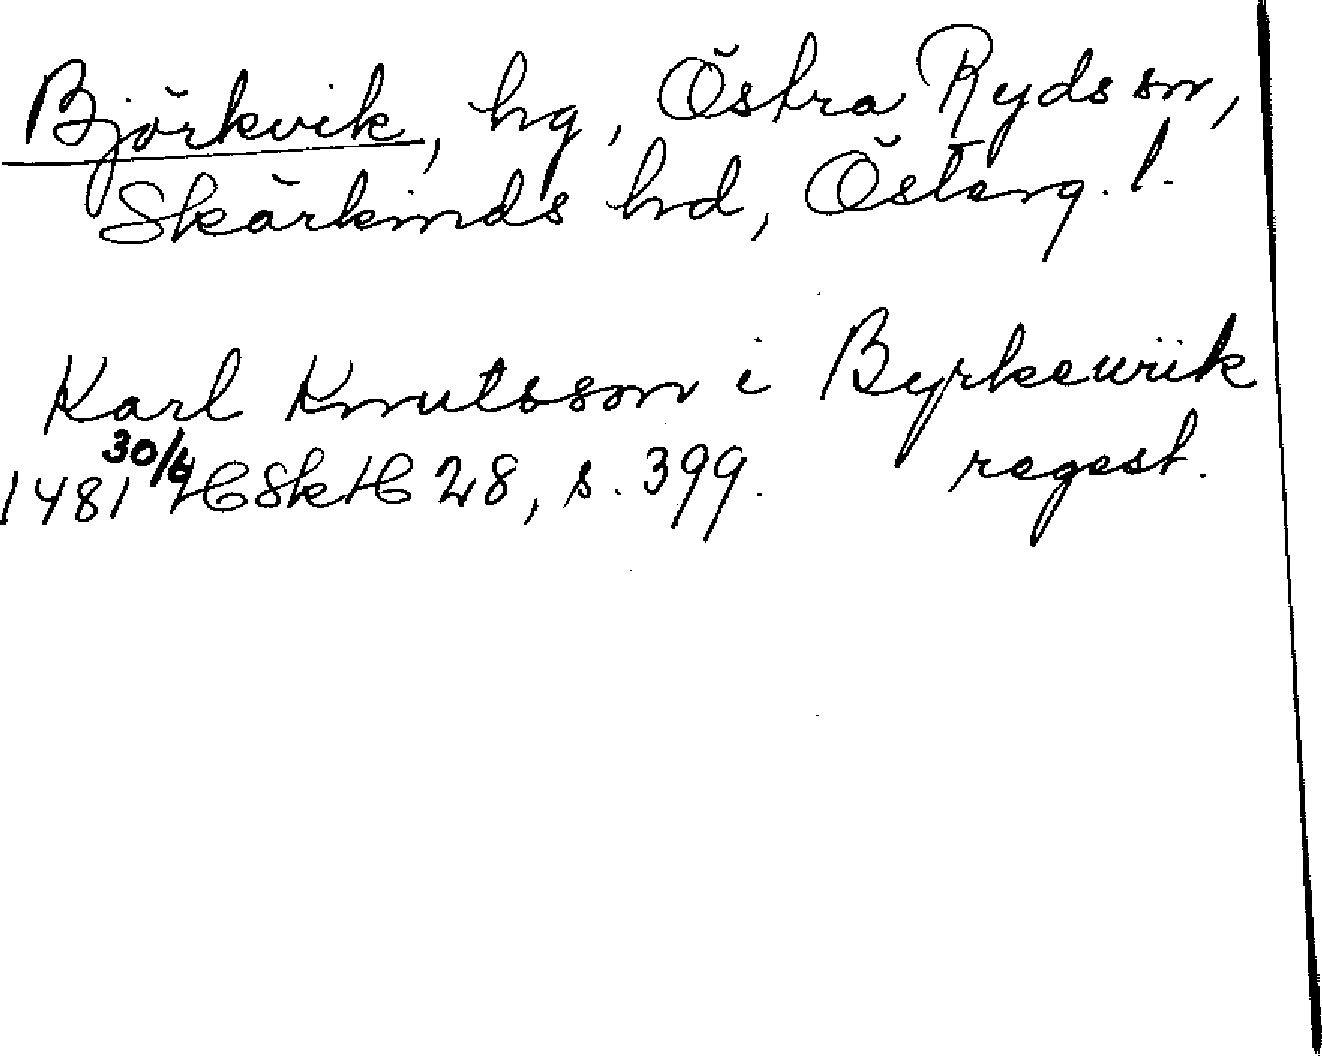 Björkvik, hg, Östra Ryds sn,
Skärkinds hd, Österg. l.
Karl Knutsson i Byrkewiik
1481 30/6 HSkH 28, s. 399. regest.